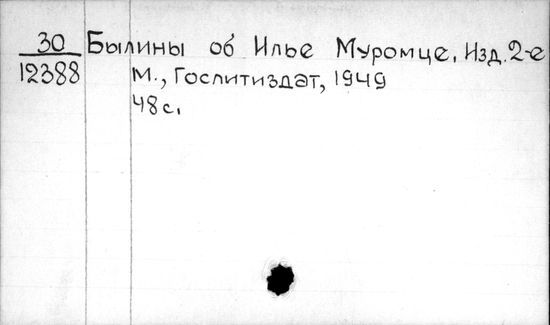 30 Былины об Илье Муромце. Изд. 2-е
12388 М., Гослитиздат, 1949
48 с.